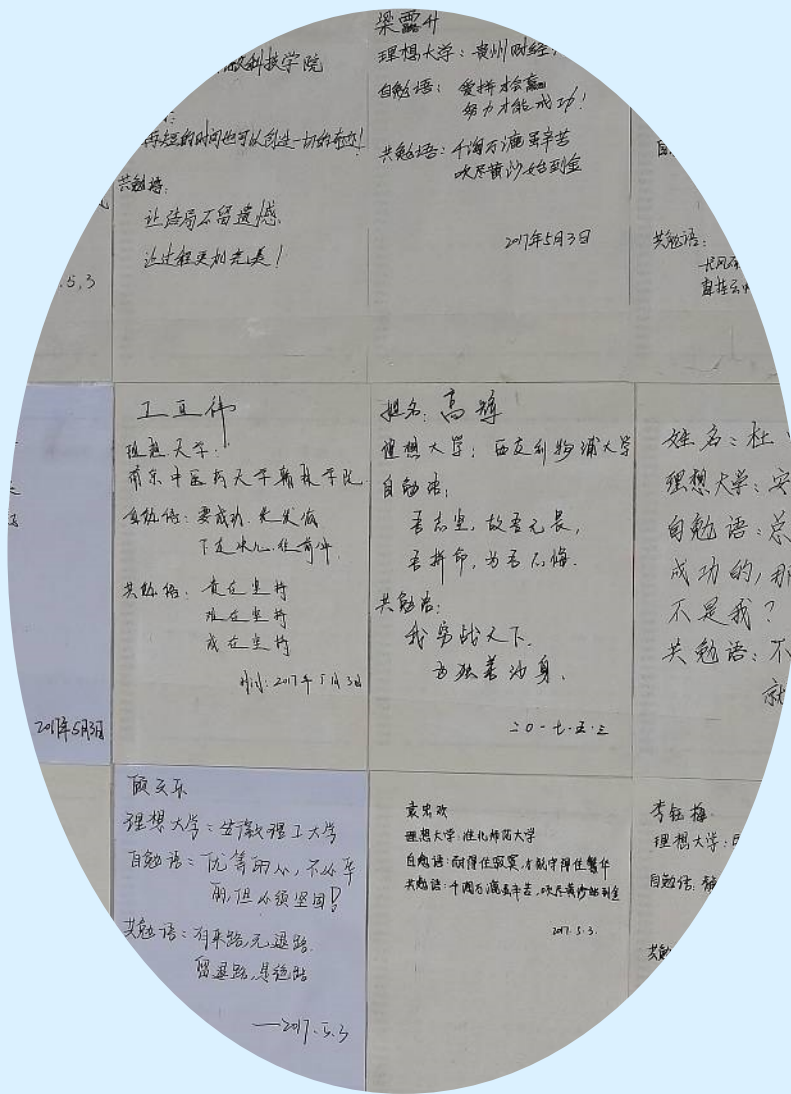 科技学院
再短的时间也可以创造一切的奇迹!
共勉语:
让结局不留遗憾
让过程更加完美!
梁露升
理想大学: 贵州财经
自勉语: 爱拼才会赢
努力才能成功!
共勉语: 千淘万漉虽辛苦
吹尽黄沙始到金
2017年5月3日
共勉语:
长风
直挂云
.5.3
2017年5月3日
理想大学:
南京中医药大学翰林学院
自勉语: 要成功, 先发疯
下定决心往前冲
共勉语: 贵在坚持
难在坚持
成在坚持
时间: 2017年5月3日
姓名: 高
理想大学: 西交利物浦大学
自勉语:
吾志坚, 故吾无畏,
吾拼命, 为吾不悔.
共勉语:
我穷战天下.
为独善汝身.
二0一七.五.三
姓名: 杜
理想大学: 安
自勉语: 总
成功的, 那
不是我?
共勉语: 不
就
顾文乐
理想大学: 安徽理工大学
自勉语: 优等的心, 不必华
丽, 但必须坚固!
共勉语: 有来路, 无退路.
留退路, 是绝路
—2017.5.3
袁忠欢
理想大学: 淮北师范大学
自勉语: 耐得住寂寞, 才能守得住繁华
共勉语: 千淘万漉虽辛苦, 吹尽黄沙始到金
2017.5.3.
李钰梅
理想大学:
自勉语:
共勉